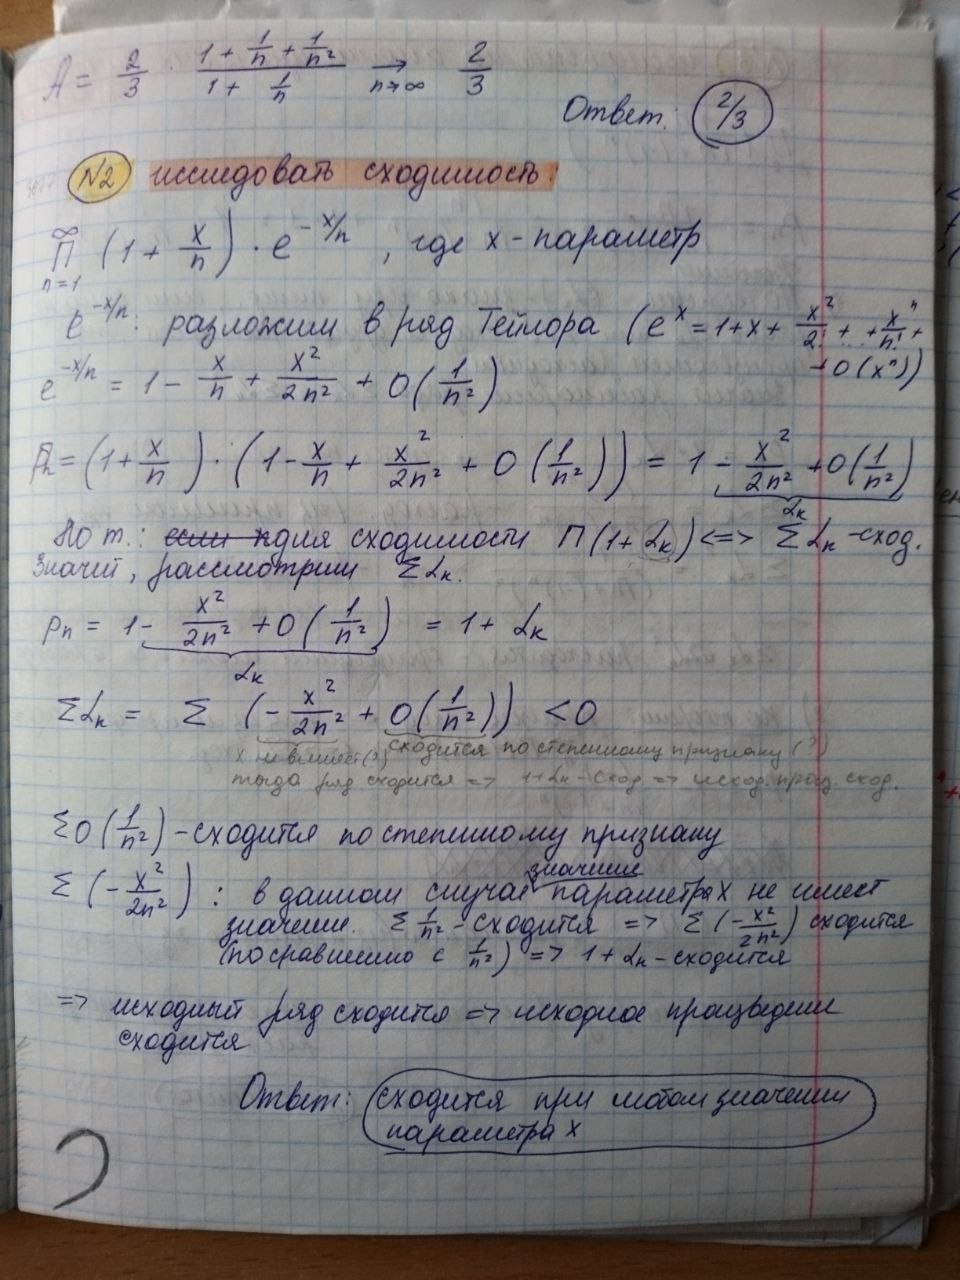 A = 2/3 · (1 + 1/n + 1/n²)/(1 + 1/n) →n→∞ 2/3
Ответ: 2/3
N2 исследовать сходимость:
∞ П n=1 (1 + x/n) · e^(-x/n) , где x - параметр
e^(-x/n): разложим в ряд Тейлора (e^x = 1 + x + x²/2! + ... + x^n/n! +
+ O(x^n))
e^(-x/n) = 1 - x/n + x²/2n² + O(1/n²)
pn = (1 + x/n) · (1 - x/n + x²/2n² + O(1/n²)) = 1 - x²/2n² + O(1/n²)
αk
По т.: для сходимости П(1 + αk) <=> Σαk - сход.
Значит, рассмотрим Σαk.
pn = 1 - x²/2n² + O(1/n²) = 1 + αk
αk
Σαk = Σ (- x²/2n² + O(1/n²)) < 0
x не влияет(?) сходится по степенному признаку (?)
тогда ряд сходится => 1+αk - сход => исход. произ. сход.
ΣO(1/n²) - сходится по степенному признаку
Σ(- x²/2n²) : в данном случае значение параметра x не имеет
значения. Σ 1/n² - сходится => Σ(- x²/2n²) сходится
(по сравнению с 1/n²) => 1 + αk - сходится
=> исходный ряд сходится => исходное произведение
сходится
Ответ: сходится при любом значении
параметра x